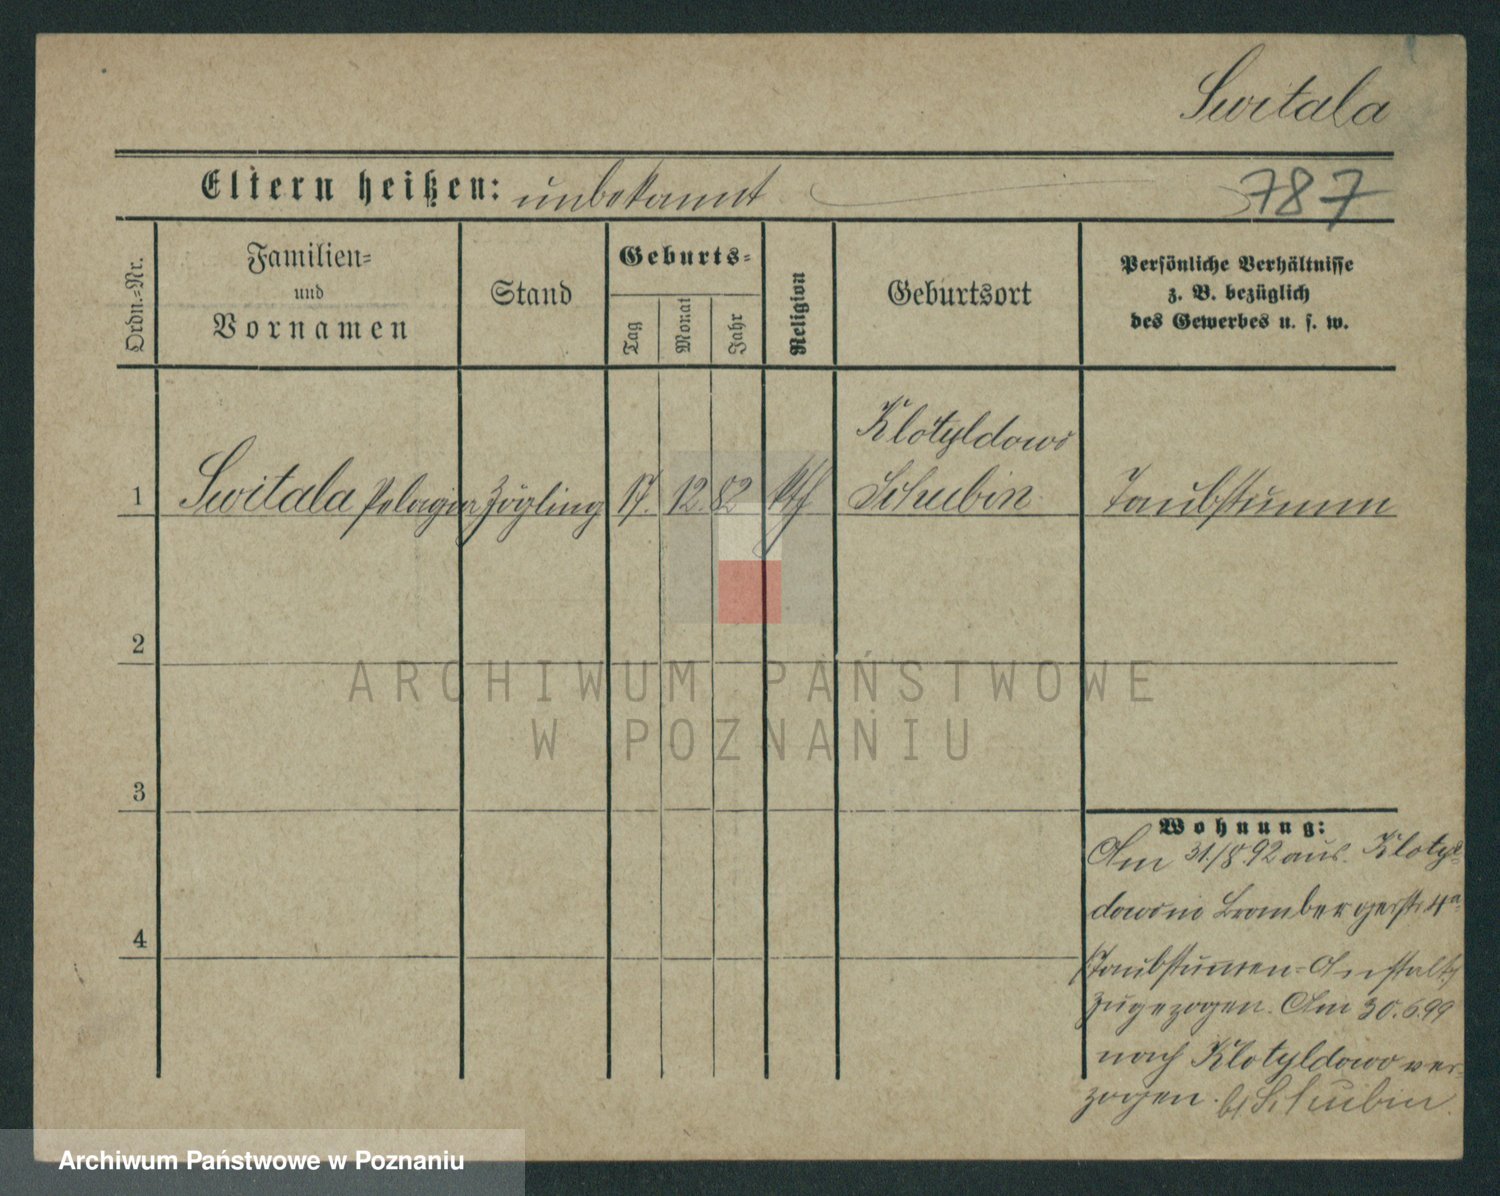 Switala
Eltern heißen: unbekannt
787
Ordn.=Nr.
Familien=
und
Vornamen
Stand
Geburts=
Tag
Monat
Jahr
Religion
Geburtsort
Persönliche Verhältnisse
z. B. bezüglich
des Gewerbes u. s. w.
Klotyldowo
1 Switala Pelagia Zögling 17. 12. 82 kth Schubin Taubstumm
2
ARCHIWUM PAŃSTWOWE
W POZNANIU
3
Wohnung:
Am 31./8.92 aus. Klotyl=
dowo in Brombergerstr 4a
Taubstummen=Anstalt
zugezogen. Am 30.6.99
4
nach Klotyldowo ver=
zogen. b/ Schubin.
Archiwum Państwowe w Poznaniu